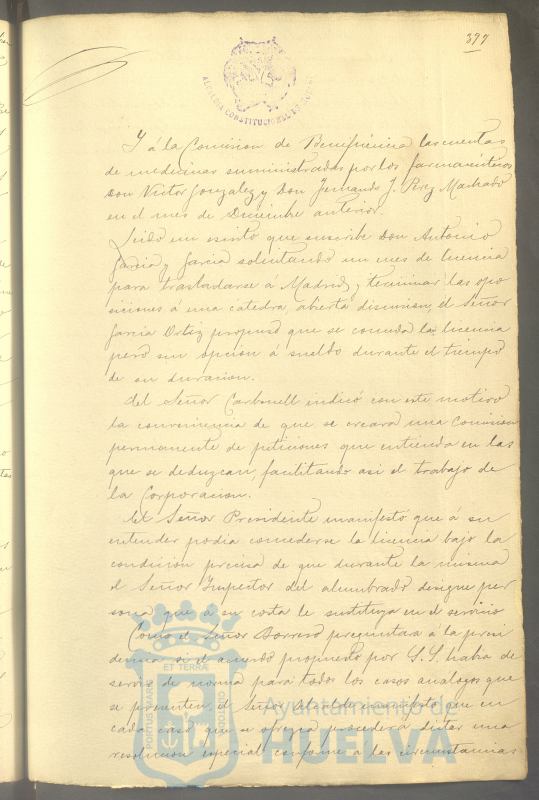 377
ALCALDIA CONSTITUCIONAL DE HUELVA
Y á la Comision de Beneficencia las cuentas
de medicinas suministradas por los farmacéuticos
Don Victor Gonzalez y Don Fernando J. Perez Machado
en el mes de Diciembre anterior.
Leido un escrito que suscribe Don Antonio
Garcia y Garcia solicitando un mes de licencia
para trasladarse á Madrid, y terminar las opo
siciones á una catedra, abierta discusion, el Señor
Garcia Ortiz propuso que se conceda la licencia
pero sin opcion á sueldo durante el tiempo
de su duracion.
El Señor Carbonell indicó con este motivo
la conveniencia de que se creara una Comision
permanente de peticiones que entienda en las
que se deduzcan, facilitando asi el trabajo de
la Corporacion.
El Señor Presidente manifestó que á su
entender podia concederse la licencia bajo la
condicion precisa de que durante la misma
el Señor Inspector del alumbrado designe per
sona que á su costa le sustituya en el servicio
Como el Señor Borrero preguntara á la presi
dencia si el acuerdo propuesto por S.S. habia de
servir de norma para todos los casos analogos que
se presenten, el Señor Alcalde manifestó que en
cada caso que se ofrezca procederá dictar una
resolucion especial conforme á las circunstancias
PORTUS MARIS ET TERRAE CUSTODIA
Ayuntamiento de
HUELVA